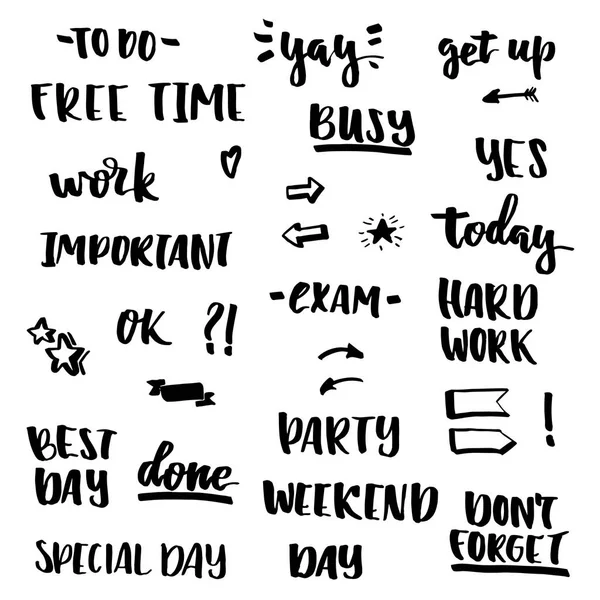 -TO DO-
FREE TIME
work
IMPORTANT
OK ?!
BEST
DAY
done
SPECIAL DAY
yay
BUSY
-EXAM-
PARTY
WEEKEND
DAY
get up
YES
today
HARD
WORK
!
DON'T
FORGET